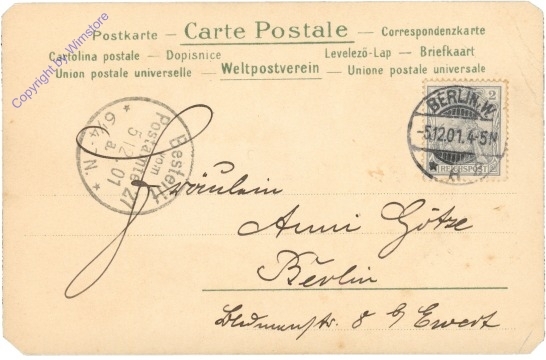 Copyright by Wimstore
Postkarte — Carte Postale — Correspondenzkarte
Cartolina postale — Dopisnice Levelezö-Lap — Briefkaart
Union postale universelle — Weltpostverein — Unione postale universale
2
BERLIN.W.
-5.12.01. 4-5N
REICHSPOST
Bestellt
vom
Postamte 27
5 12 01
6¼-N.
Fräulein
Anni Götze
Berlin
8 b/ Ewert